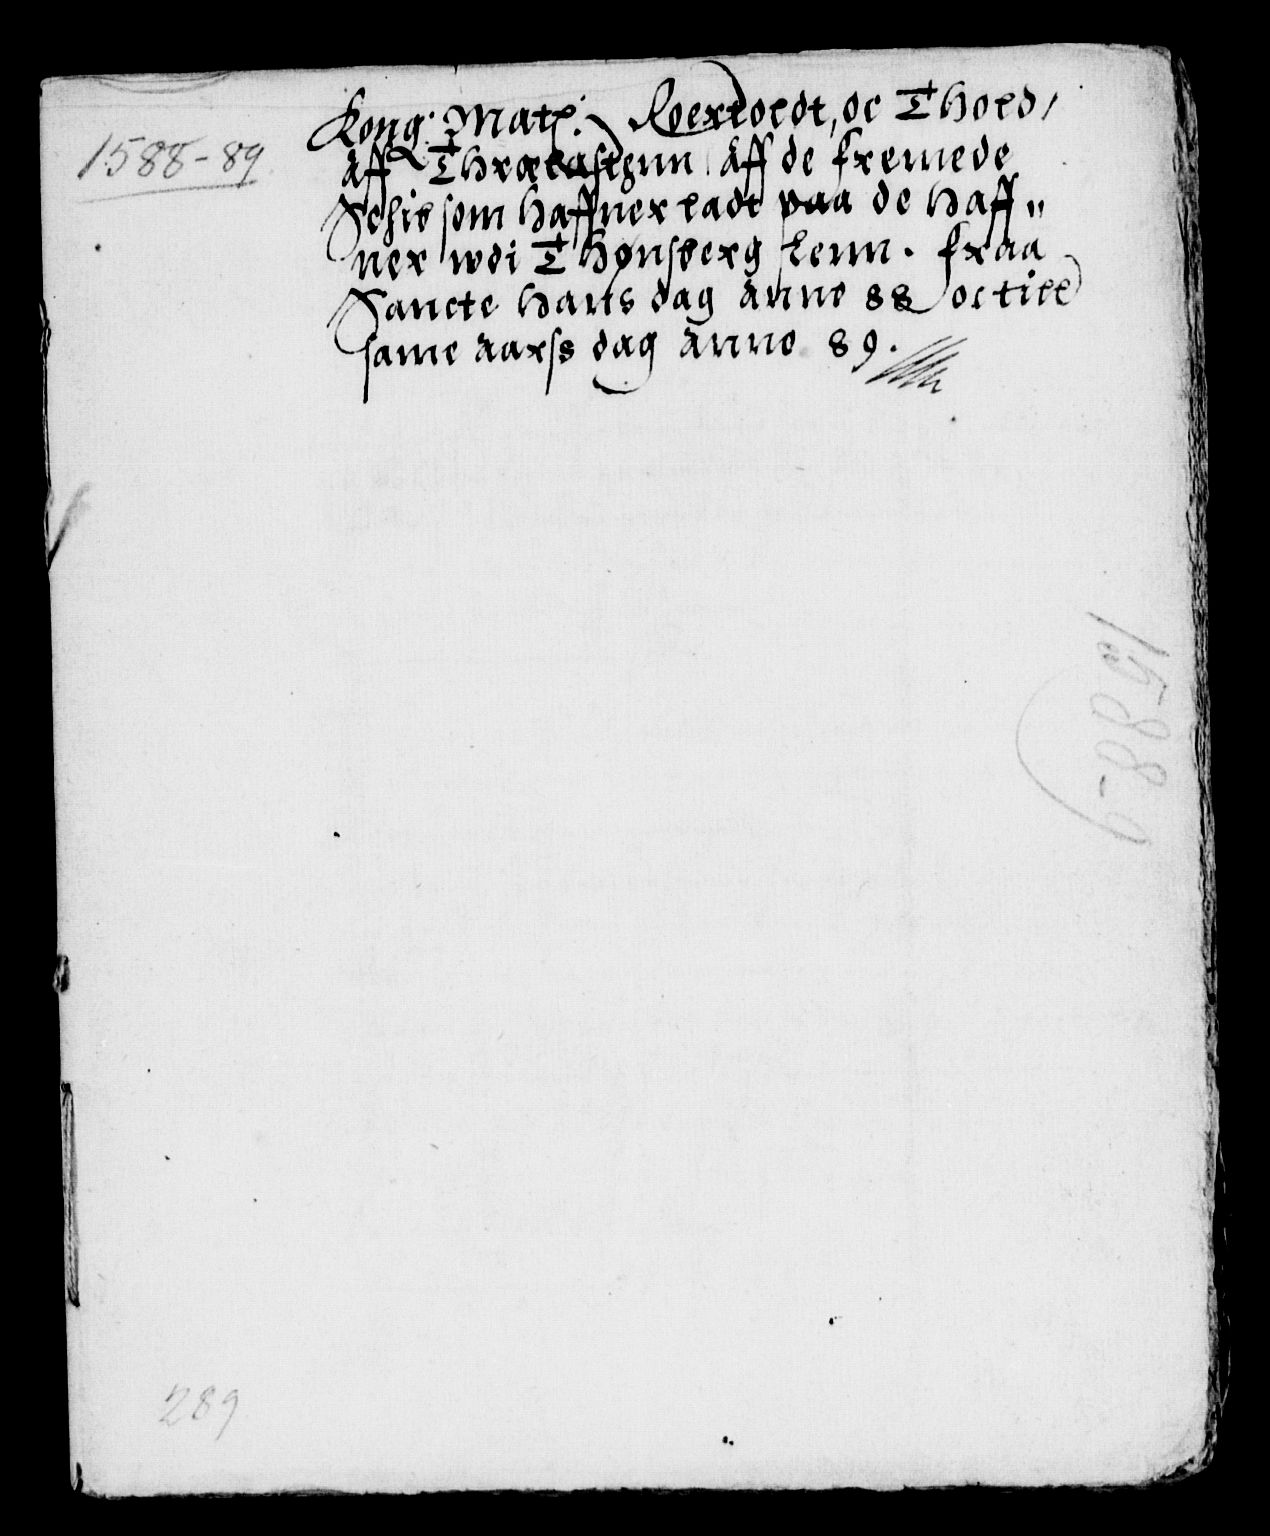 1588-89
Kong: Matz: Roertoldt, oc Thold
aff Thrælastenn aff de fremede
Schib som haffuer ladt paa de haff„
ner wdi Thønsberg lenn. fraa
Sancte Hans dag anno 88 oc till
same aarss dag anno 89.
1588-9
289